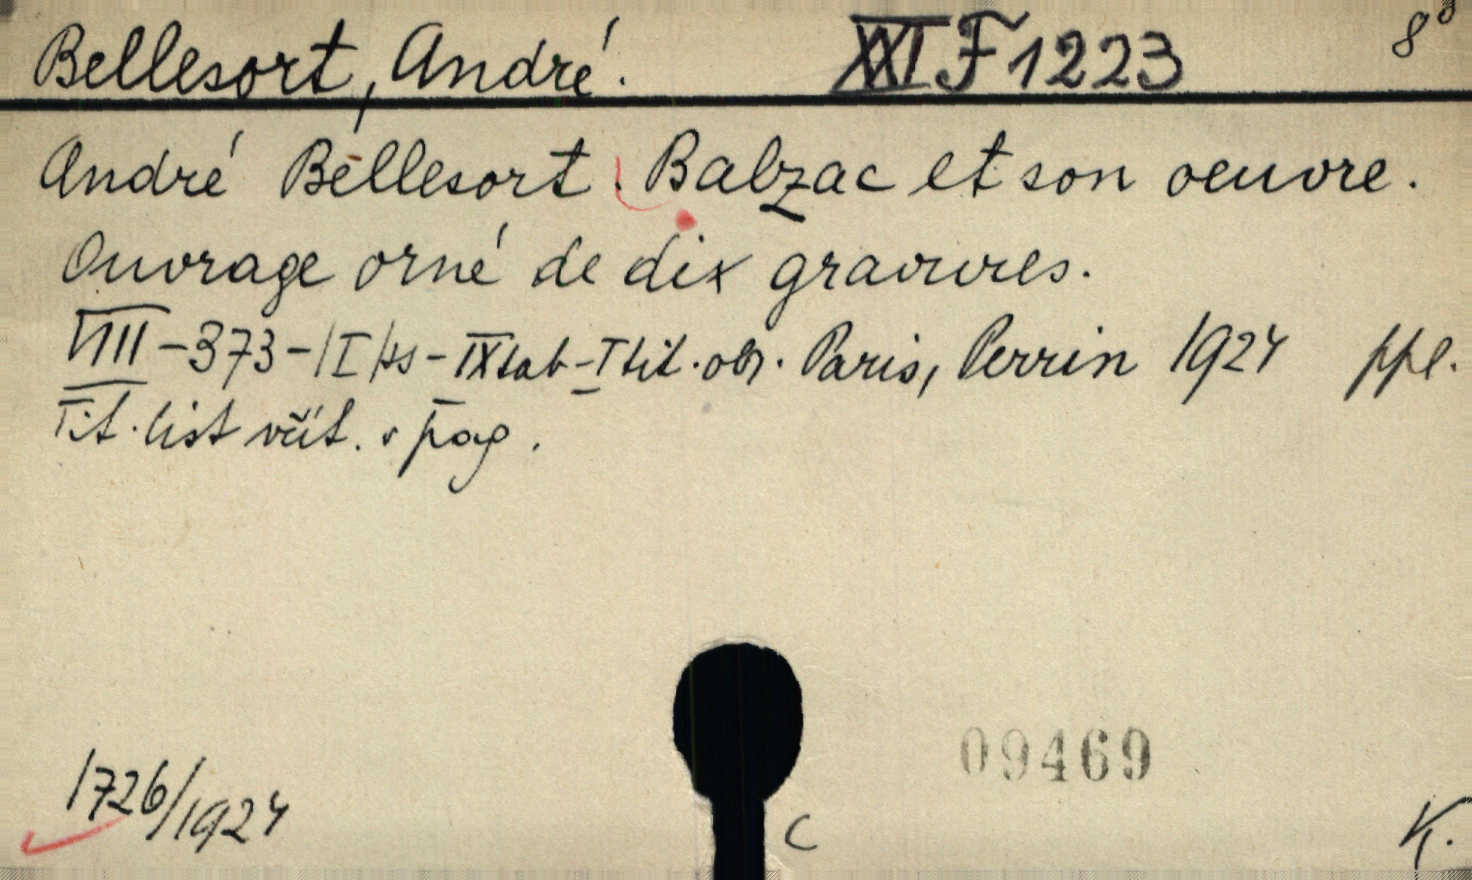 Bellesort, André. XXI F 1223 8°
André Bellesort. Balzac et son oeuvre.
Ouvrage orné de dix gravures.
VIII-373-|I|ss-IX tab-I tit. obr. Paris, Perrin 1924 ppl.
Tit. list včít. v pag.
09469
1726/1924
C
K.